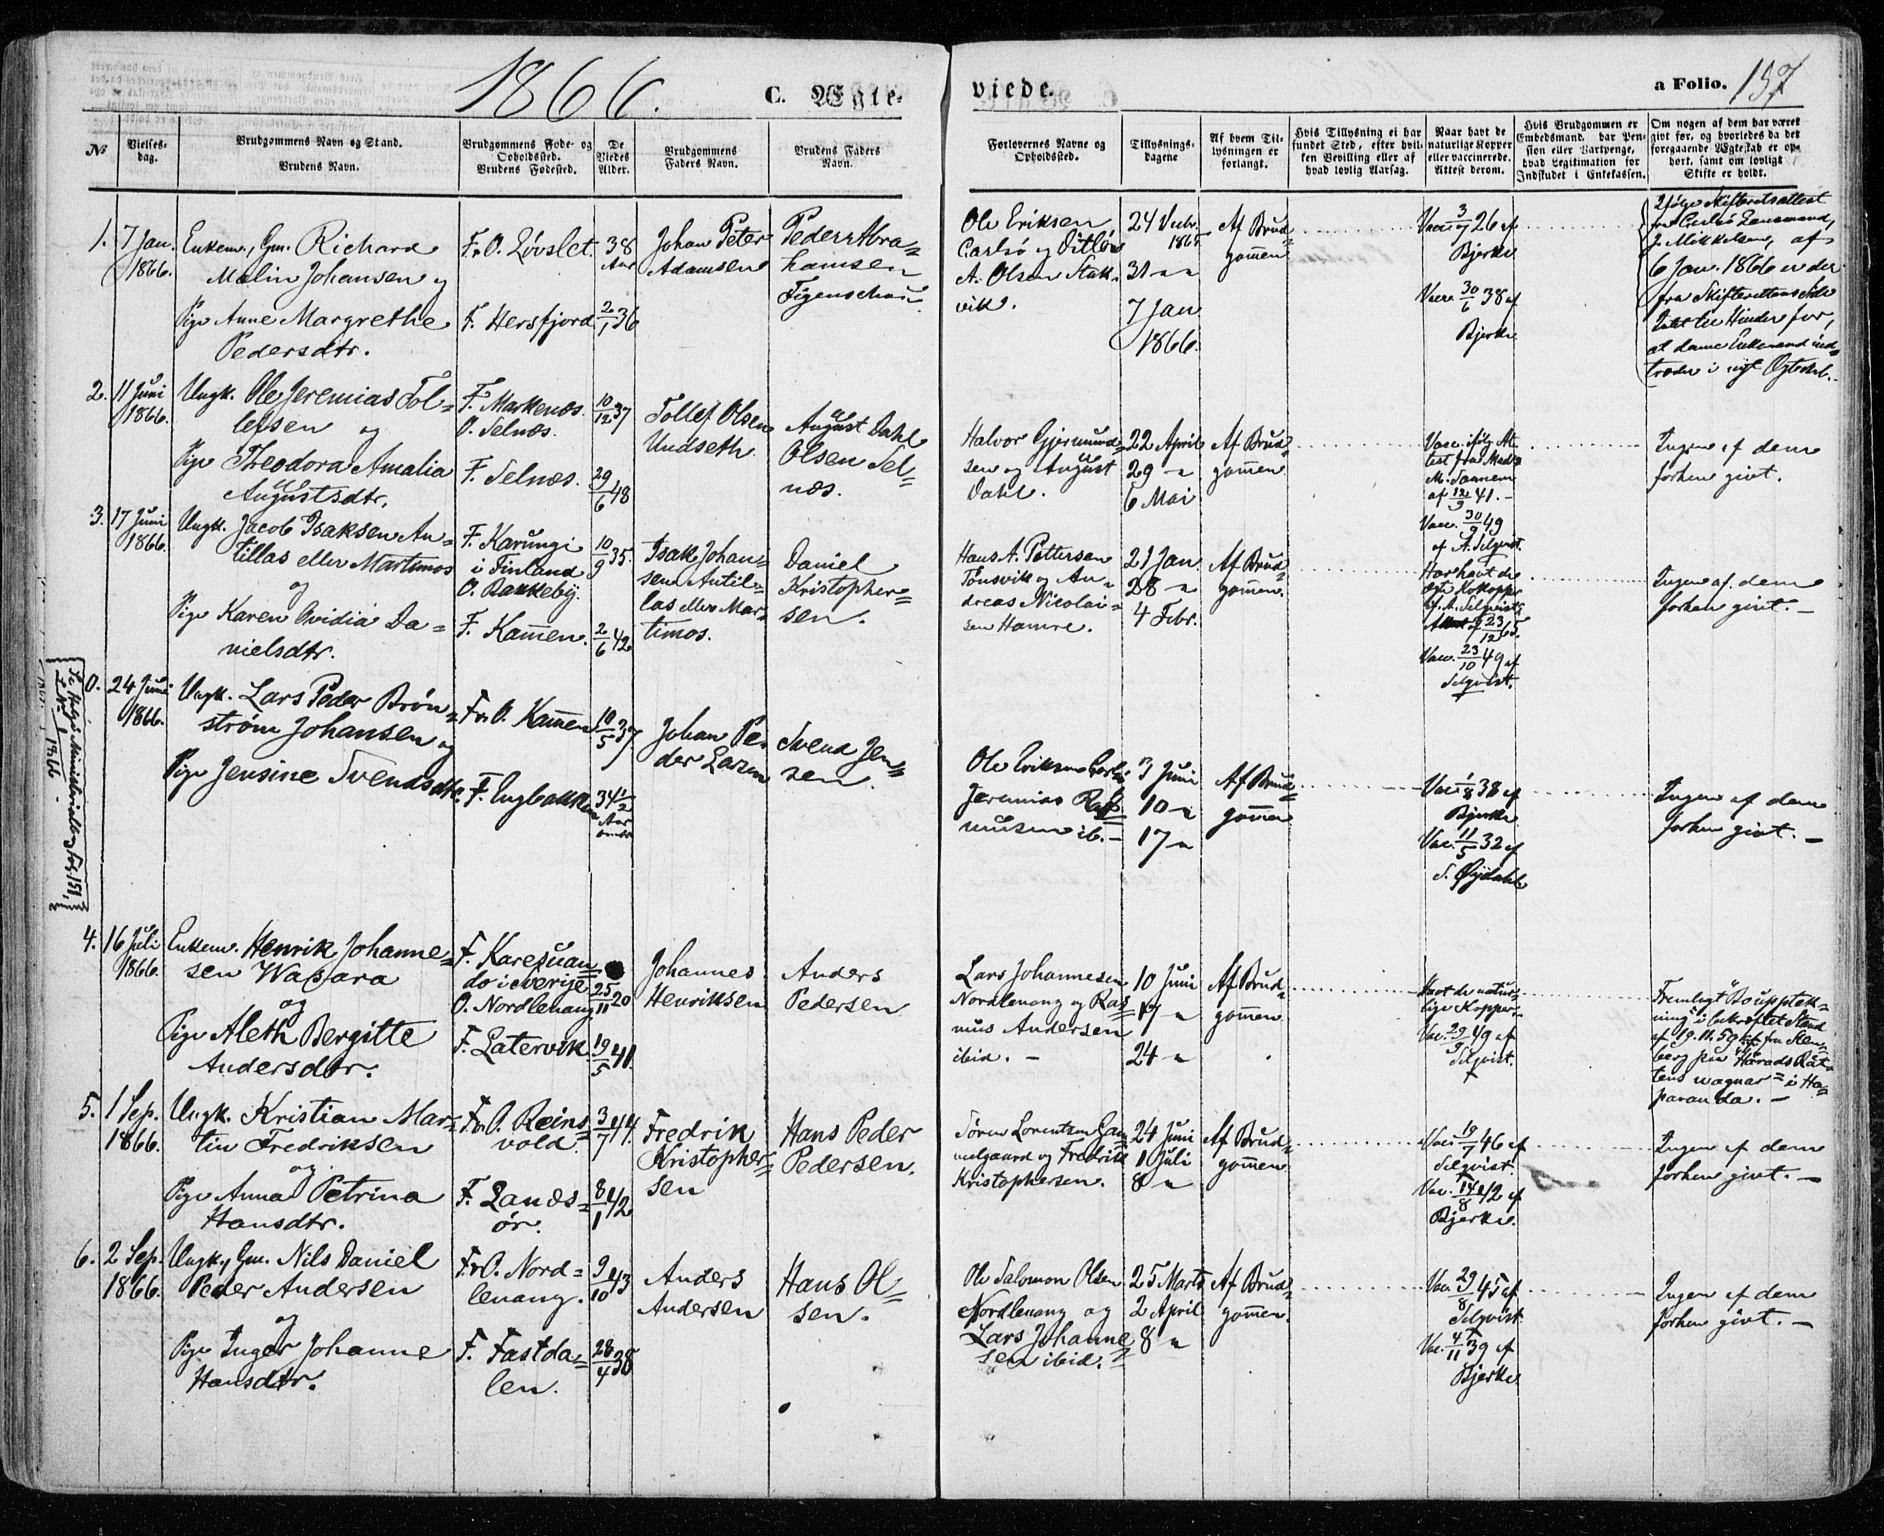 1866.
C. Ægte-
viede.
a Folio. 137
№
Vielses-
dag.
Brudgommens Navn og Stand.
Brudens Navn.
Brudgommens Føde- og
Opholdssted.
Brudens Fødested.
De
Viedes
Alder.
Brudgommens
Faders Navn.
Brudens Faders
Navn.
Forlovernes Navne og
Opholdssted.
Tillysnings-
dagene
Af hvem Til-
lysningen er
forlangt.
Hvis Tillysning ei har
fundet Sted, efter hvil-
ken Bevilling eller af
hvad lovlig Aarsag.
Naar havt de
naturlige Kopper
eller vaccinerede.
Attest derom.
Hvis Brudgommen er
Embedsmand, har Pen-
sion eller Vartpenge,
hvad Legitimation for
Indskudet i Enkekassen.
Om nogen af dem har været
gift før, og hvorledes da det
foregaaende Ægteskab er op-
hørt, samt om lovligt
Skifte er holdt.
1.
7 Jan.
1866.
Enkem., Gm. Richard
Malin Johansen og
Pige Anne Margrethe
Pedersdtr.
F. o O. Løvslet.
F. Hersfjord
38
Aar
2/1 36
Johan Peter
Adamsen
Peder Abra-
hamsen
Figenschau
Ole Eriksen
Carlsø og Ditlev
A. Olsen Stak-
vik.
24 Decbr.
1865
31 "
7 Jan
1866.
Af Brud-
gommen
Vacc. 3/7 26 af
Bjerke
Vacc. 30/6 38 af
Bjerke
Ifølge Skifteretsattest
fra Carlsø Lensmand,
J. Mikkelsen, af
6 Jan. 1866 er der
fra Skifterettens Side
Intet til Hinder for,
at denne Enkemand ind-
træder i nyt Ægteskab.
2.
11 Juni
1866.
Ungk. Ole Jeremias Tol-
lefsen og
Pige Theodora Amalia
Augustsdtr.
F. Markenæs.
O. Selnæs.
F. Selnæs.
10/12 37
29/6 48
Tollef Olsen
Undseth
August Dahl
Olsen Sel-
næs.
Halvor Gjermund-
sen og August
Dahl.
22 April
29 "
6 Mai
Af Brud-
gommen
Vacc. ifølg At-
test fra
af 12/9 41.
Vacc. 30/9 49
af A. Selqvist.
Ingen af dem
forhen givt.
3.
17 Juni
1866.
Ungk. Jacob Isaksen An-
tillas eller Martimos
og
Pige Karen Ovidia Da-
nielsdtr.
F. Karungi
i Finland
O. Bakkeby.
F. Kammen.
10/9 35.
2/6 42
Isak Johan-
sen Antil-
las eller Mar-
timos.
Daniel
Kristopher-
sen.
Hans A. Pettersen
Tønsvik og An-
dreas Nicolai-
sen Hamre.
21 Jan
28 "
4 Febr.
Af Brud-
gommen.
Har havt de
ægte Kokopper
A. Selqvists
Attest af 23/12 65.
Vacc. 23/10 49 af
Selqvist.
Ingen af dem
forhen givt. —
0.
24 Juni
1866.
Ungk. Lars Peder Brön-
strøm Johansen og
Pige Jensine Svendsdtr.
F. o O. Kammen
F. Engbakken
10/5 37
34 1/2
Aar
Johan Pe-
der Larsen
Svend Jen-
sen.
Ole Eriksen Carlsø
Jeremias Ras-
mussen ib. —
3 Juni
10 "
17 "
Af Brud-
gommen
Vacc. 1/8 38 af
Bjerke
Vacc. 11/5 32 af
S. Øydahl
Ingen af dem
forhen givt. —
Ministerialbog Fol. 151,
1866
4.
16 Juli
1866.
Enkem. Henrik Johanne-
sen Wasara
og
Pige Aleth Bergitte
Andersdtr.
F. Karesuan-
do i Sverige
O. Nordlenang
F. Latervik
25/11 20
19/5 41.
Johannes
Henriksen
Anders
Pedersen
Lars Johannesen
Nordlenang og Ras-
mus Andersen
ibid. —
10 Juni
17 "
24 "
Af Brud-
gommen
Havt de natur-
lige Kopper
Vac. 29/9 49 af
Selqvist.
Fremlagt "Boupptek-
ning" i bekræftet Stand
af 19.11.59 fra Sten-
berg
i Ha-
paranda. —
5.
1 Sep.
1866.
Ungk. Kristian Mar-
tin Fredriksen
og
Pige Anna Petrina
Hansdtr.
F. o O. Reins-
vold.
F. Lanæs-
ör.
3/7 44.
8/1 42
Fredrik
Kristopher-
sen
Hans Peder
Pedersen.
Sören Lorentsen Gam-
melgaard og Fredrik
Kristophersen.
24 Juni
1 Juli
8 "
Af Brud-
gommen
Vacc 19/7 46 af
Selqvist.
Vac. 14/8 42 af
Bjerke.
Ingen af dem
forhen givt. —
6.
2 Sep.
1866.
Ungk., Gm. Nils Daniel
Peder Andersen
og
Pige Inger Johanne
Hansdtr.
F. o O. Nord-
lenang.
F. Fastda-
len.
9/10 43
28/4 38
Anders
Andersen
Hans Ol-
sen.
Ole Salomon Olsen
Nordlenang og
Lars Johanne-
sen ibid.
25 Marts
2 April
8 "
Af Brud-
gommen.
Vac 29/8 45 af
Selqvist.
Vac. 4/11 39 af
Bjerke
Ingen af dem
forhen givt. —